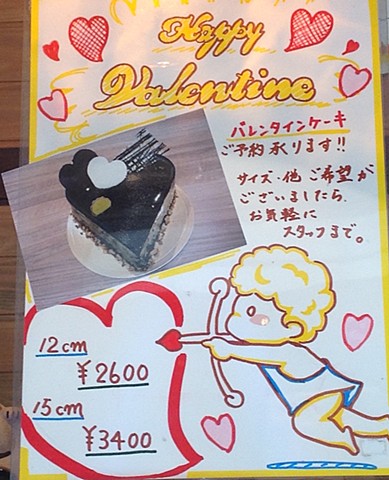 Happy
Valentine
バレンタインケーキ
ご予約承ります!!
サイズ・他 ご希望が
ございましたら、
お気軽に
スタッフまで。
12cm
¥2600
15cm
¥3400